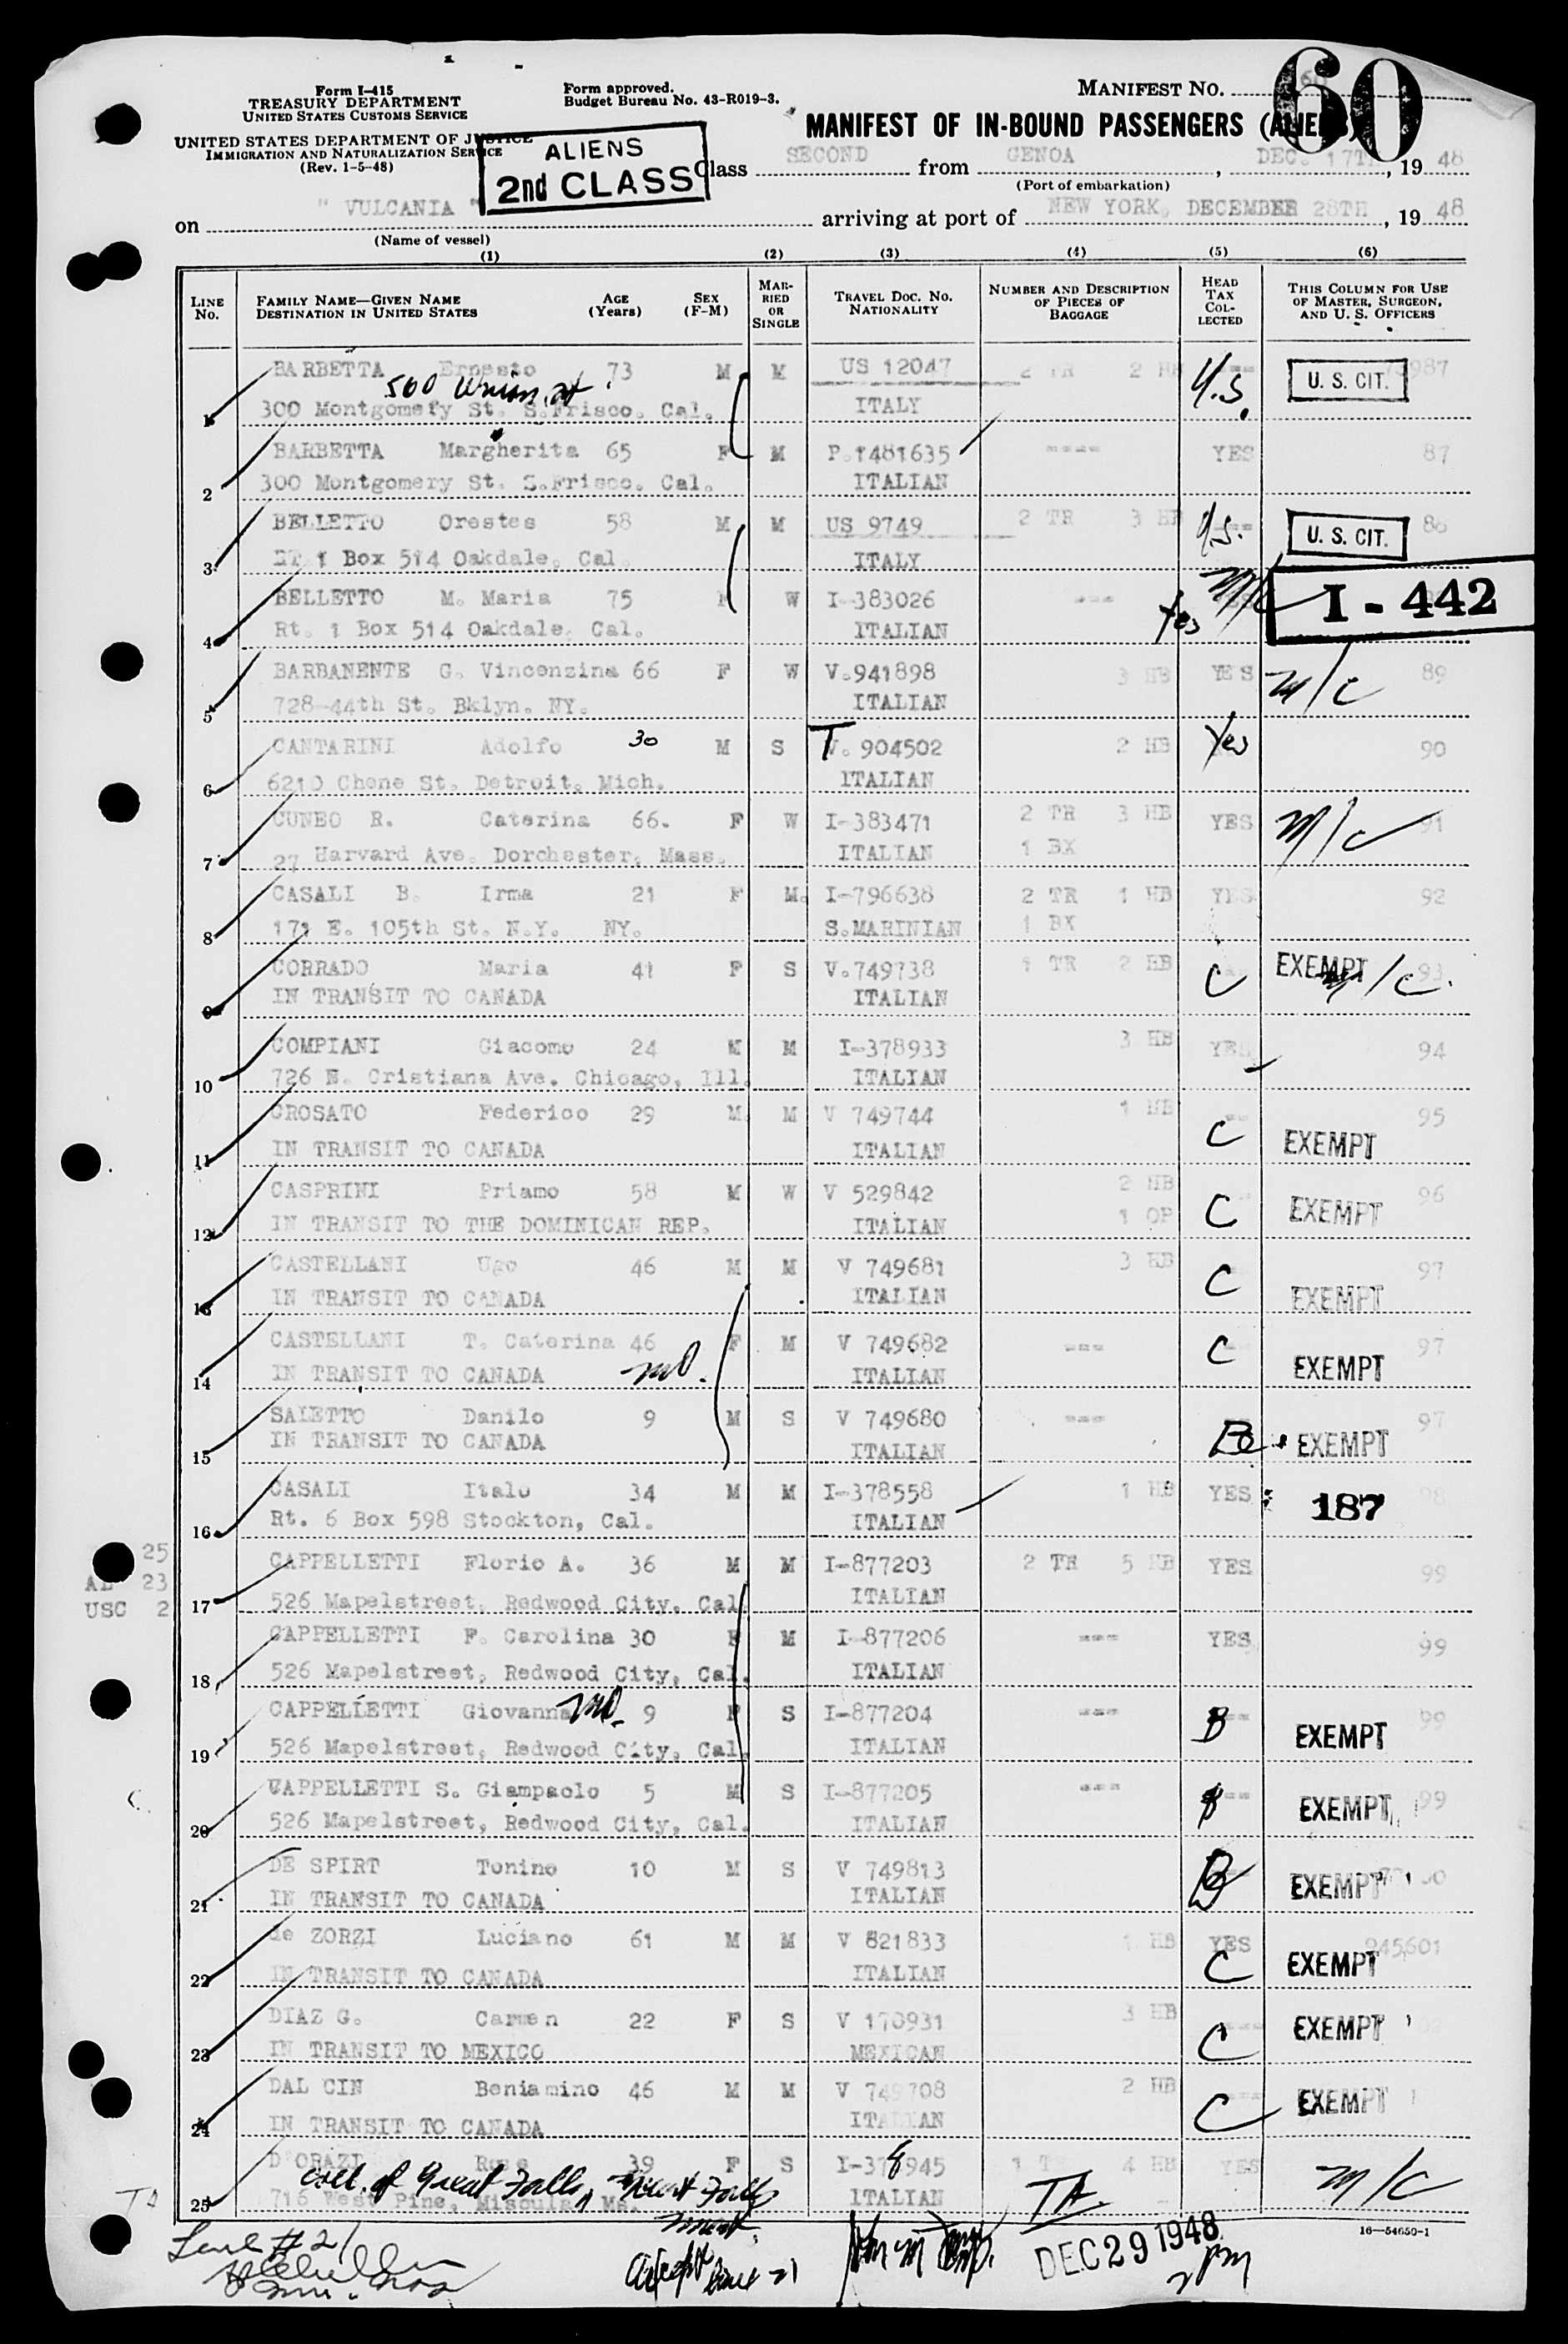 Form I-415
TREASURY DEPARTMENT
UNITED STATES CUSTOMS SERVICE
UNITED STATES DEPARTMENT OF JUSTICE
IMMIGRATION AND NATURALIZATION SERVICE
(Rev. 1-5-48)
Form approved.
Budget Bureau No. 43-R019-3.
MANIFEST NO.
60
MANIFEST OF IN-BOUND PASSENGERS (ALIENS)
ALIENS
2nd CLASS
Class SECOND from GENOA, DEC. 17TH, 19 48
(Port of embarkation)
on " VULCANIA " arriving at port of NEW YORK, DECEMBER 28TH, 19 48
(Name of vessel)
(1) (2) (3) (4) (5) (6)
LINE No. FAMILY NAME—GIVEN NAME DESTINATION IN UNITED STATES AGE (Years) SEX (F-M) MARRIED OR SINGLE TRAVEL DOC. NO. NATIONALITY NUMBER AND DESCRIPTION OF PIECES OF BAGGAGE HEAD TAX COLLECTED THIS COLUMN FOR USE OF MASTER, SURGEON, AND U. S. OFFICERS
BARBETTA Ernesto 73 M M US 12047 2 TR 2 HB U.S. U. S. CIT. 987
500
1 300 Montgomery St. S.Frisco. Cal. ITALY
BARBETTA Margherita 65 F M P.1481635 ---- YES 87
2 300 Montgomery St. S.Frisco. Cal. ITALIAN
BELLETTO Orestes 58 M M US 9749 2 TR 3 HB U.S. U. S. CIT. 88
3 RT 1 Box 514 Oakdale, Cal. ITALY
BELLETTO M. Maria 75 F W I-383026 --- Yes M/C I - 442
4 Rt. 1 Box 514 Oakdale, Cal. ITALIAN
BARBANENTE G. Vincenzina 66 F W V.941898 3 HB YES M/C 89
5 728-44th St. Bklyn. NY. ITALIAN
CANTARINI Adolfo 30 M S T V. 904502 2 HB Yes 90
6 6210 Chene St. Detroit, Mich. ITALIAN
CUNEO R. Caterina 66. F W I-383471 2 TR 3 HB YES M/C 91
7 27 Harvard Ave. Dorchester, Mass. ITALIAN 1 BX
CASALI B. Irma 21 F M. I-796638 2 TR 1 HB YES 92
8 171 E. 105th St. N.Y. NY. S.MARINIAN 1 BX
CORRADO Maria 41 F S V.749738 1 TR 2 HB C EXEMPT M/C. 93
9 IN TRANSIT TO CANADA ITALIAN
COMPIANI Giacomo 24 M M I-378933 3 HB YES 94
10 726 N. Cristiana Ave. Chicago, Ill. ITALIAN
CROSATO Federico 29 M M V 749744 1 HB C EXEMPT 95
11 IN TRANSIT TO CANADA ITALIAN
CASPRINI Priamo 58 M W V 529842 2 HB C EXEMPT 96
12 IN TRANSIT TO THE DOMINICAN REP. ITALIAN 1 OP
CASTELLANI Ugo 46 M M V 749681 3 HB C EXEMPT 97
13 IN TRANSIT TO CANADA ITALIAN
CASTELLANI T. Caterina 46 F M V 749682 --- C EXEMPT 97
14 IN TRANSIT TO CANADA ITALIAN
SALETTO Danilo 9 M S V 749680 --- B EXEMPT 97
15 IN TRANSIT TO CANADA ITALIAN
CASALI Italo 34 M M I-378558 1 HB YES 187 98
16 Rt. 6 Box 598 Stockton, Cal. ITALIAN
25
AL 23
USC 2
CAPPELLETTI Florio A. 36 M M I-877203 2 TR 5 HB YES 99
17 526 Mapelstreet, Redwood City, Cal. ITALIAN
CAPPELLETTI F. Carolina 30 F M I-877206 --- YES 99
18 526 Mapelstreet, Redwood City, Cal. ITALIAN
CAPPELLETTI Giovanna 9 F S I-877204 --- B EXEMPT 99
19 526 Mapelstreet, Redwood City, Cal. ITALIAN
CAPPELLETTI S. Giampaolo 5 M S I-877205 --- B EXEMPT 99
20 526 Mapelstreet, Redwood City, Cal. ITALIAN
DE SPIRT Tonino 10 M S V 749813 B EXEMPT
21 IN TRANSIT TO CANADA ITALIAN
de ZORZI Luciano 61 M M V 821833 1 HB YES C EXEMPT 945,601
22 IN TRANSIT TO CANADA ITALIAN
DIAZ G. Carmen 22 F S V 170931 3 HB C EXEMPT
23 IN TRANSIT TO MEXICO MEXICAN
DAL CIN Beniamino 46 M M V 749708 2 HB C EXEMPT
24 IN TRANSIT TO CANADA ITALIAN
D'ORAZI Rose 39 F S I-378945 1 T 4 HB YES M/C
of Great Falls, Great Falls
25 716 West Pine, Miscula, Mo. ITALIAN
16—54650-1
Line # 21
DEC 29 1948
2 PM